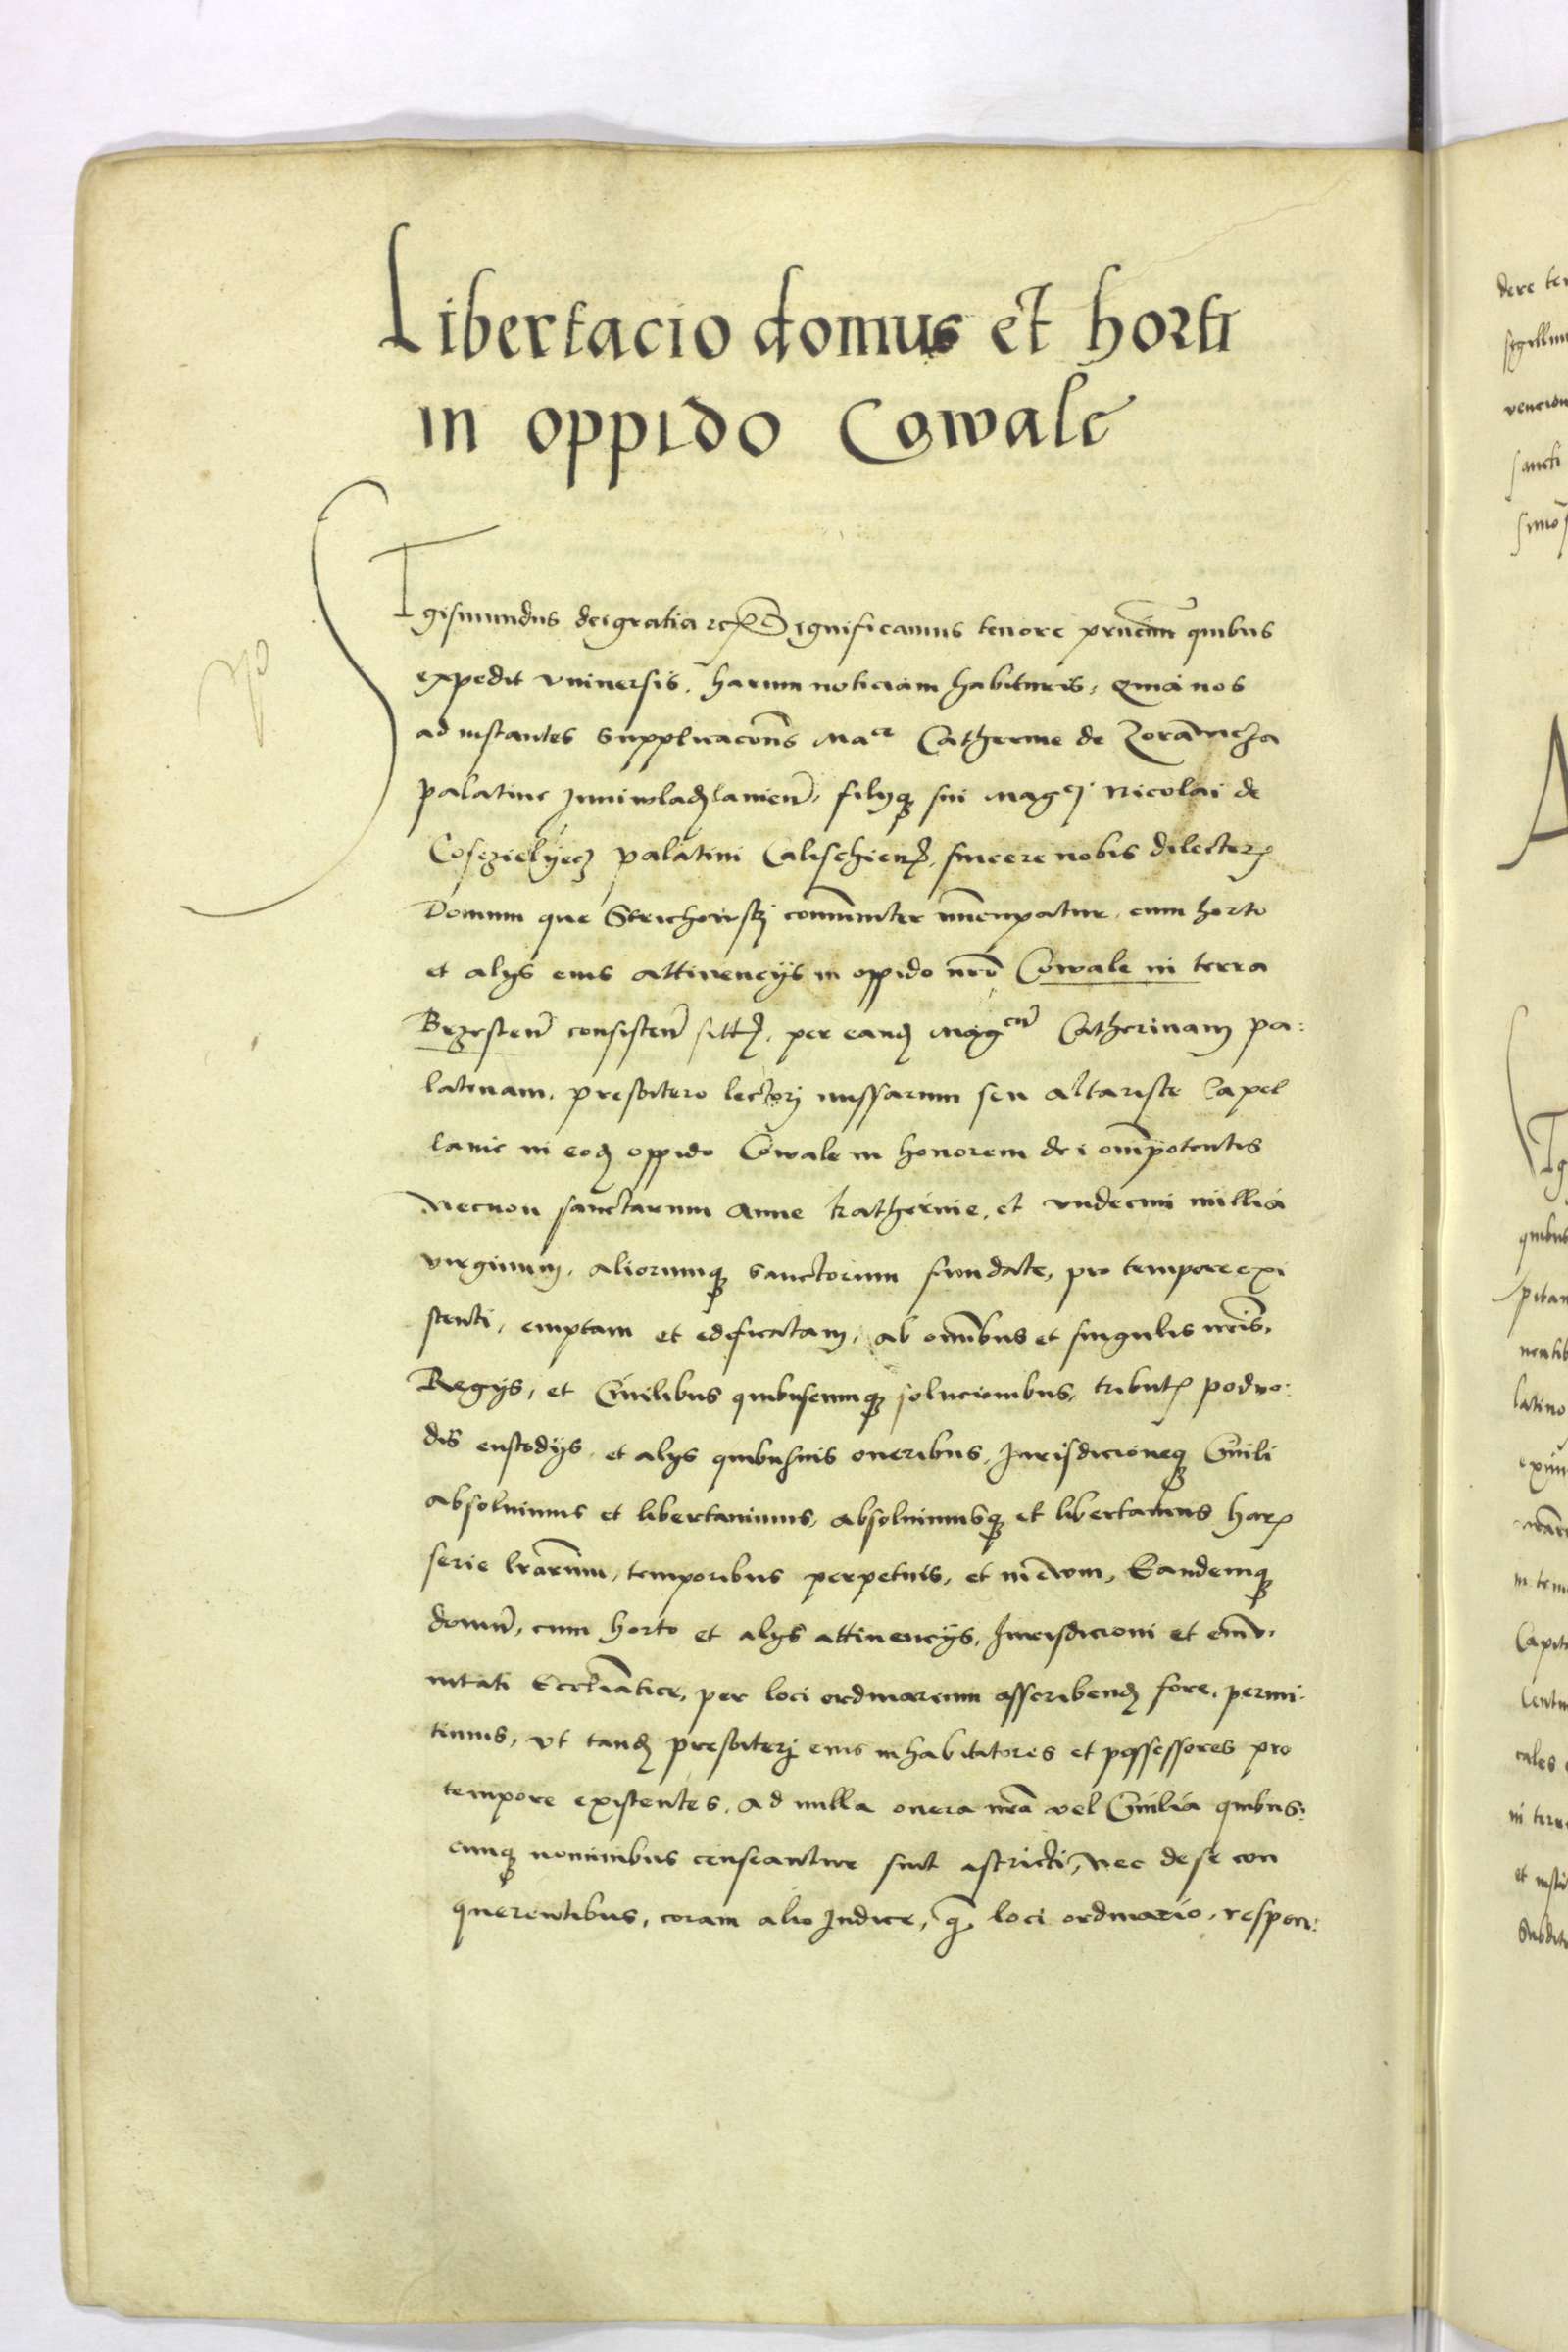 Libertacio domus et horti
in oppido Cowale
Sigismundus dei gratia rex Significamus tenore prncium quibus
expedit vniuersis, harum noticiam habituris, Quia nos
ad instantes supplicacões Mace Catherine de
palatine Juniwladzlauien, filijq sui Magci Nicolai de
Cosczielyecz palatini Calischien, sincere nobis dilector
Domum que Strichowsky comuniter nuncupatur, cum horto
et alijs eius attinencijs in oppido nrõ Cowale in terra
Brzesten consisten sitt, per eand Magcam Catherinam pa:
latinam, presbitero lectorj missarum seu altariste Capel
lanie in eod oppido Cowale in honorem dei omipotentis
Necnon sanctarum Anne Katherine, et vndecim millia
virginum, aliorumq sanctorum fundate, pro tempore exi
stenti, emptam et edificatam, ab omibus et singulis nris,
Regijs, et Ciuilibus quibuscumq solucionibus, tribut podwo:
dis custodijs, et alijs quibusuis oneribus, Jurisdicioneq Ciuili
absoluimus et libertauimus, absoluimusq et libertamus har
serie lrarum, temporibus perpetuis, et in euum, Eandemq
domu, cum horto et alijs attinencijs, Jurisdicioni et emu
nitati Ecclesiatice, per loci ordinarium asscribend fore, permi:
timus, vt tand presbiterj eius inhabitatores et possessores pro
tempore existentes, ad nulla onera nra vel Ciuilia quibus:
cunq nominibus censeantur sint astricti, Nec de se con
querentibus, coram alio Judice, q loci ordinario, respon:
dere ter
sigillum
sancti
A
quibus
latino
Capit
cales